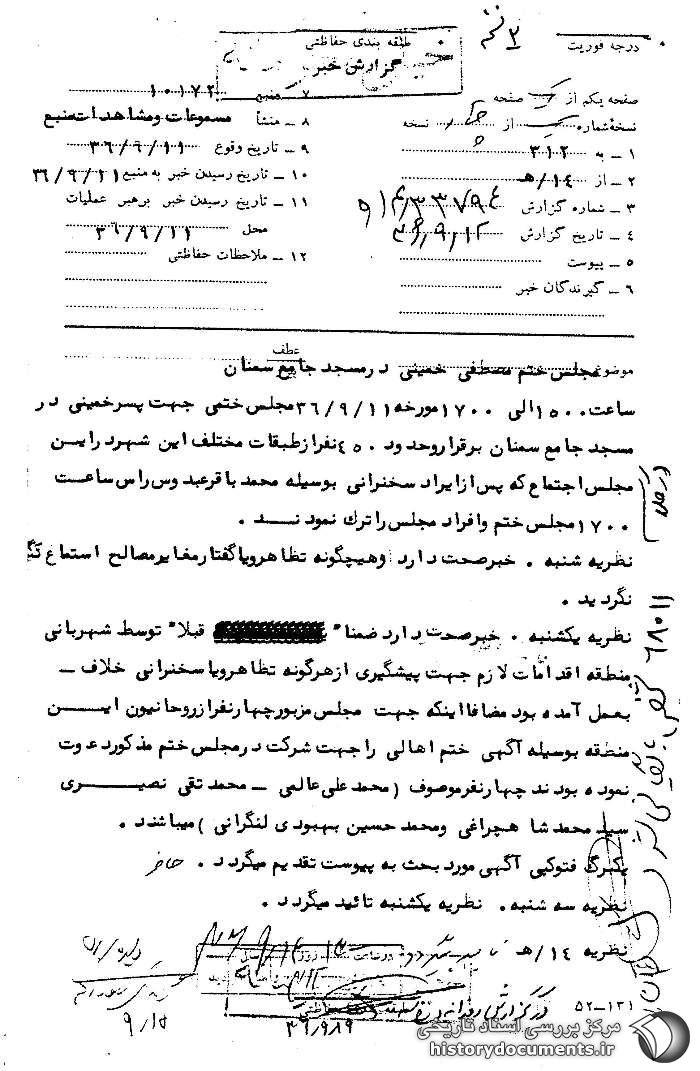 درجه فوریت
طبقه بندی حفاظتی
گزارش خبر
صفحه یکم از یک صفحه
نسخه شماره از نسخه
۱ ــ به ۳۱۲
۲ ــ از ۱۴/هـ
۳ ــ شماره گزارش
۴ ــ تاریخ گزارش
۵ ــ پیوست
۶ ــ گیرندگان خبر
۷ منبع ۱۰۱۷۲
۸ ــ منشأ مسموعات ومشاهدات منبع
۹ ــ تاریخ وقوع ۳۶/۹/۱۱
۱۰ ــ تاریخ رسیدن خبر به منبع ۳۶/۹/۱۱
۱۱ ــ تاریخ رسیدن خبر برهبر عملیات
محل ۳۶/۹/۱۱
۱۲ ــ ملاحظات حفاظتی
عطف
موضوع مجلس ختم مصطفی خمینی در مسجد جامع سمنان
ساعت ۱۵۰۰ الی ۱۷۰۰ مورخه ۳۶/۹/۱۱ مجلس ختمی جهت پسر خمینی در
مسجد جامع سمنان برقرار وحدود ۴۵۰ نفر از طبقات مختلف این شهر در این
مجلس اجتماع که پس از ایراد سخنرانی بوسیله محمد باقر عبدوس راس ساعت
۱۷۰۰ مجلس ختم وافراد مجلس را ترك نمودند .
نظریه شنبه . خبر صحت دارد وهیچگونه تظاهر ویا گفتار مغایر مصالح استماع
نگردید .
نظریه یکشنبه . خبر صحت دارد ضمنا" قبلا" توسط شهربانی
منطقه اقدامات لازم جهت پیشگیری از هرگونه تظاهر ویا سخنرانی خلاف ــ
بعمل آمده بود مضافا اینکه جهت مجلس مزبور چهار نفر از روحانیون این
منطقه بوسیله آگهی ختم اهالی را جهت شرکت در مجلس ختم مذکور دعوت
نموده بودند چهار نفر موصوف (محمد علی عالمی ــ محمد تقی نصیری
سید محمد شاهچراغی ومحمد حسین بهبودی لنگرانی ) میباشند .
یکبرگ فتوکپی آگهی مورد بحث به پیوست تقدیم میگردد .
نظریه سه شنبه . نظریه یکشنبه تائید میگردد .
نظریه ۱۴/هـ
۵۲-۱۳۱
۹/۱۵
مرکز بررسی اسناد تاریخی
historydocuments.ir